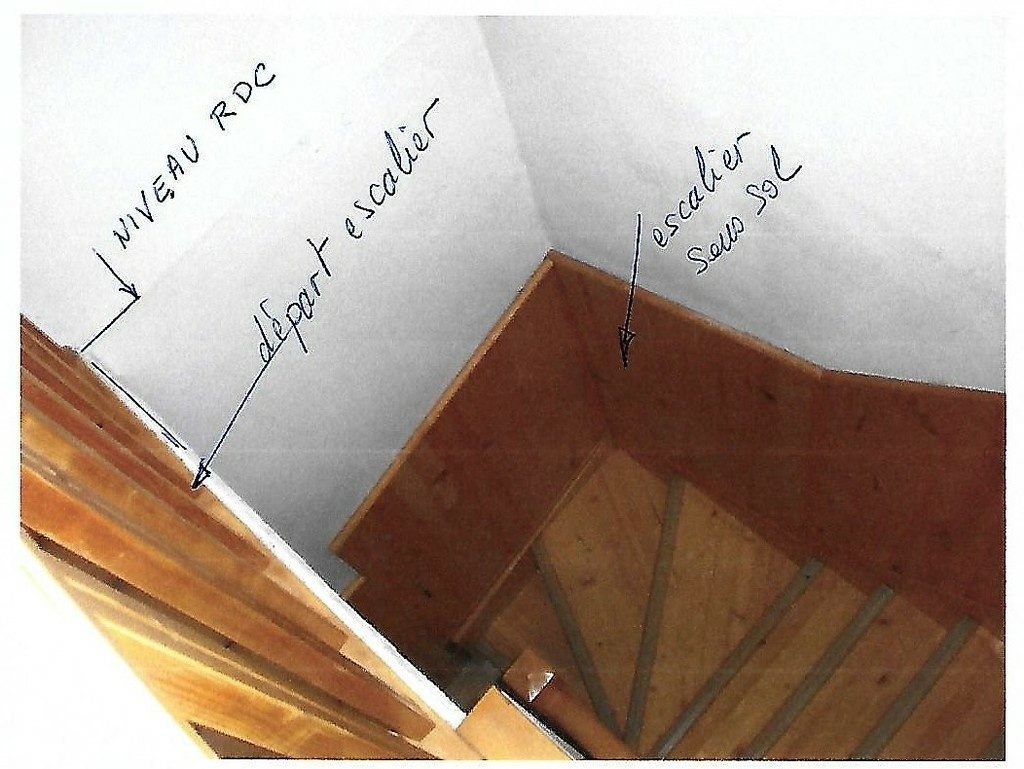 NIVEAU RDC
départ escalier
escalier
sous sol